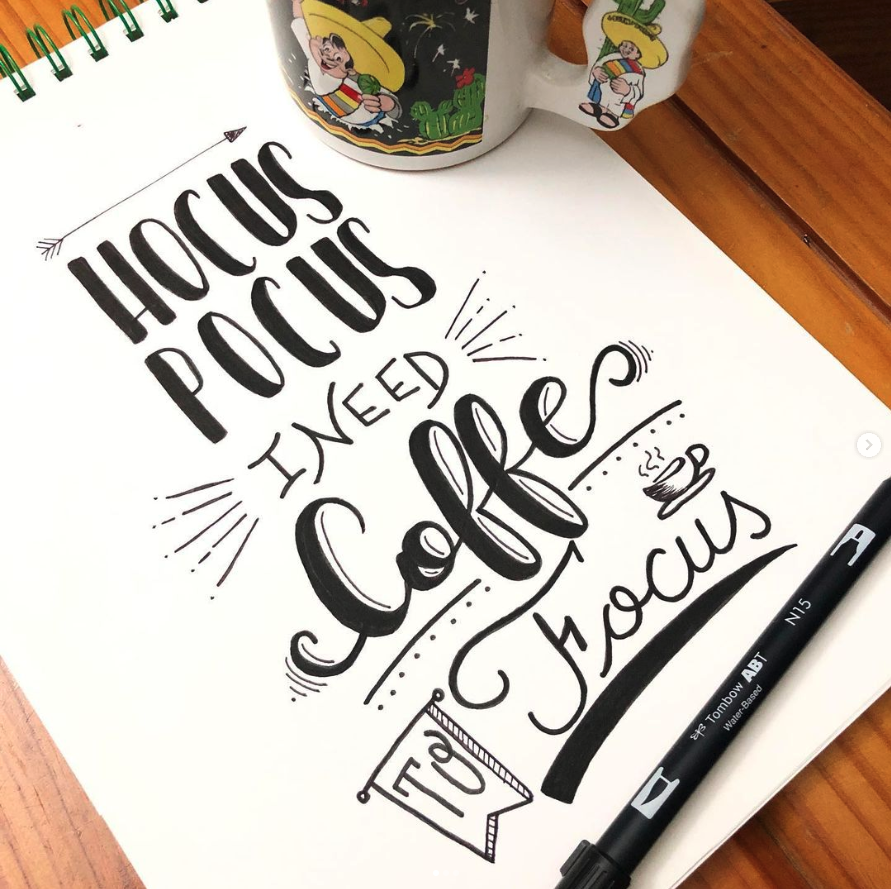 HOCUS
POCUS
I NEED
Coffe
TO
Focus
Tombow ABT N15
Water-Based